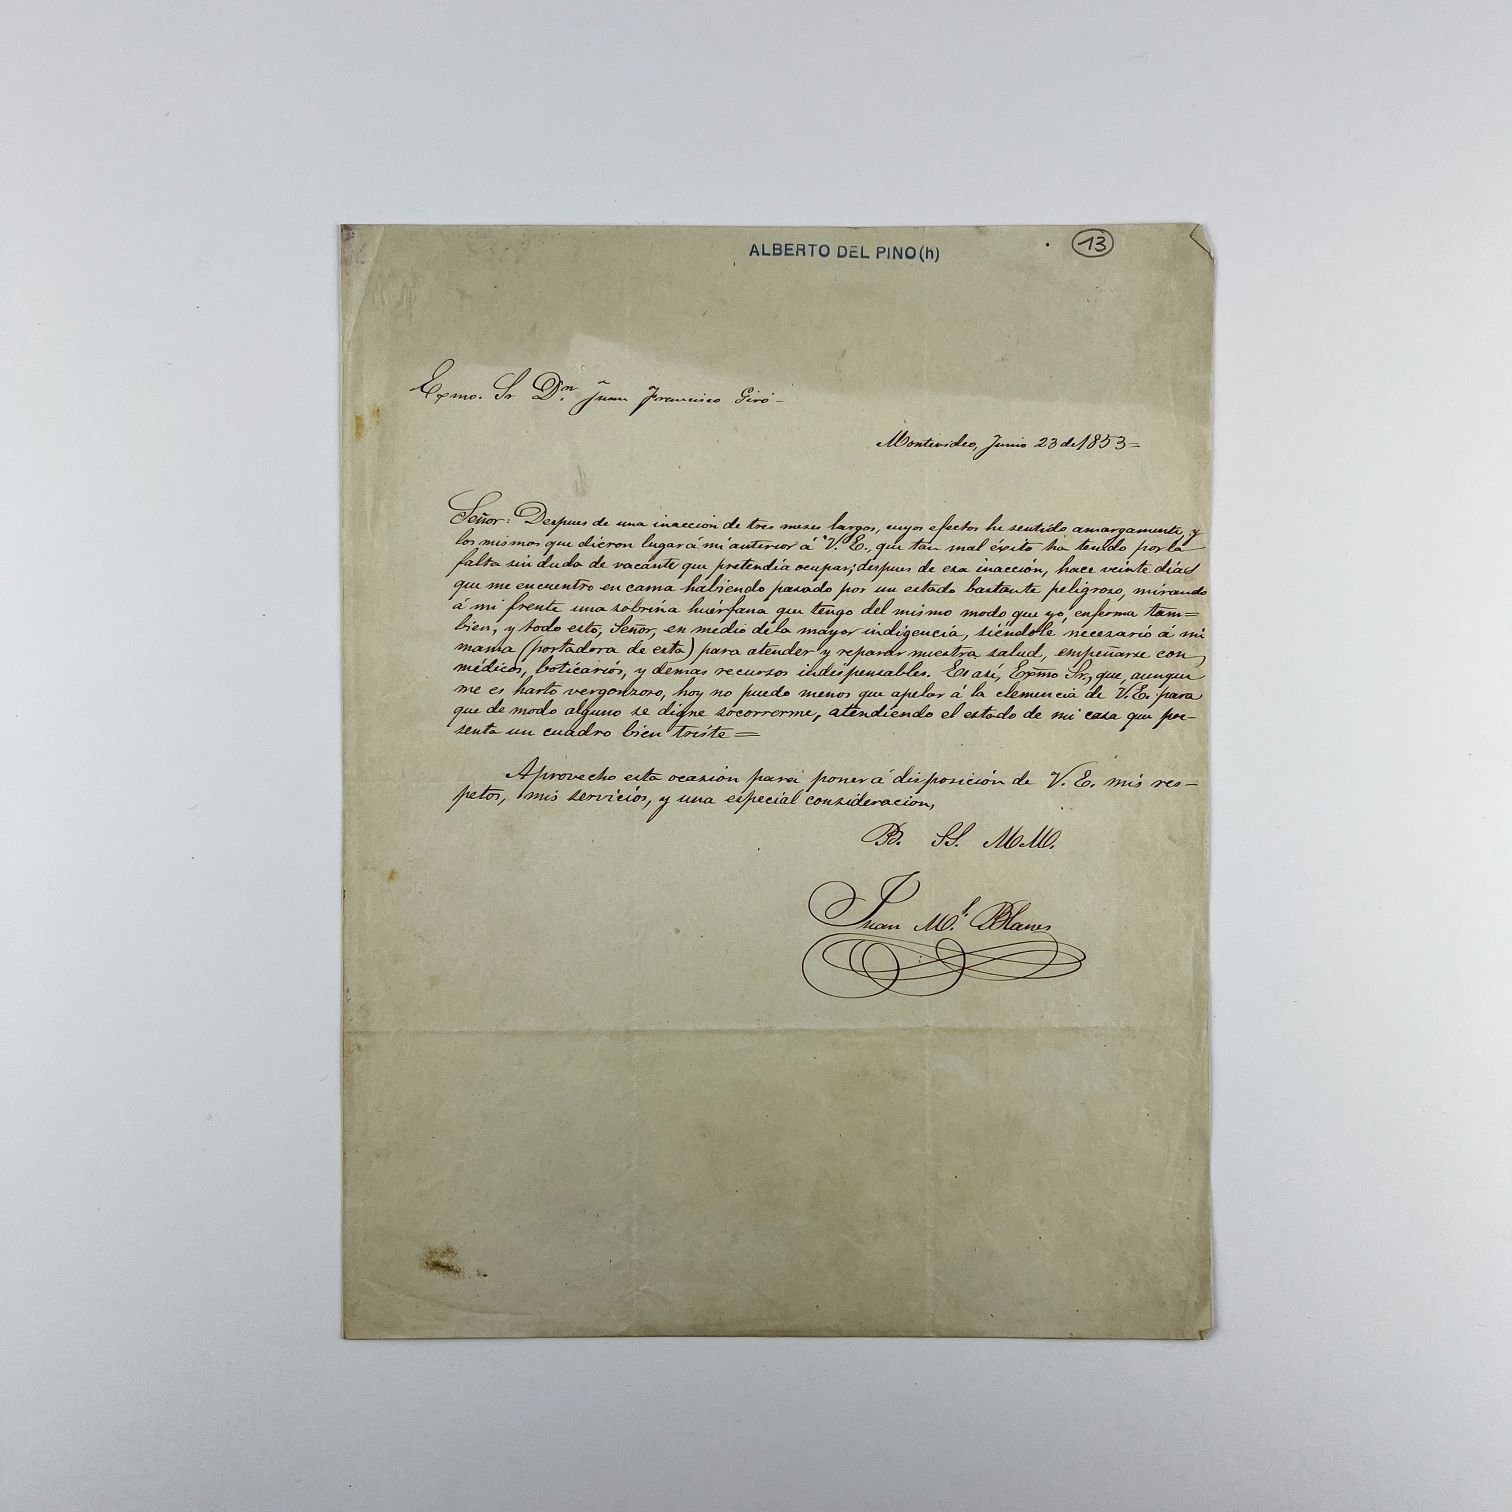 ALBERTO DEL PINO (h)
13
Exmo. Sr Dn. Juan Francisco Giró –
Montevideo, Junio 23 de 1853 =
Señor: Despues de una inaccion de tres meses largos, cuyos efectos he sentido amargamente, y
los mismos que dieron lugar á mi anterior á V. E., que tan mal éxito ha tenido por la
falta sin duda de vacante que pretendia ocupar; despues de esa inacción, hace veinte dias
que me encuentro en cama habiendo pasado por un estado bastante peligroso, mirando
á mi frente una sobrina huérfana que tengo del mismo modo que yo, enferma tam=
bien, y todo esto, Señor, en medio de la mayor indigencia, siéndole necesario á mi
mama (portadora de esta) para atender y reparar nuestra salud, empeñarse con
médicos, boticarios, y demas recursos indispensables. Es asi, Exmo Sr, que, aunque
me es harto vergonzoso, hoy no puedo menos que apelar á la clemencia de V. E. para
que de modo alguno se digne socorrerme, atendiendo el estado de mi casa que pre-
senta un cuadro bien triste =
Aprovecho esta ocasion para poner á disposición de V. E. mis res=
petos, mis servicios, y una especial consideracion,
B. SS. MM.
Juan Ml. Blanes